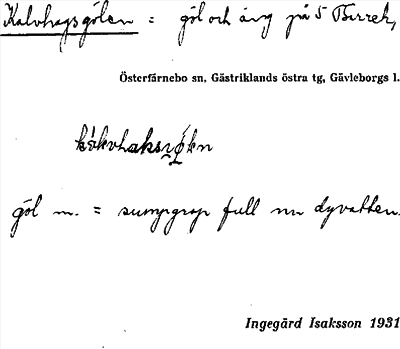 Kalvhagsgölen = göl och äng på 5 Berrek,
Österfärnebo sn, Gästriklands östra tg, Gävleborgs l.
göl m. = sumpgrop full m dyvatten.
Ingegärd Isaksson 1931